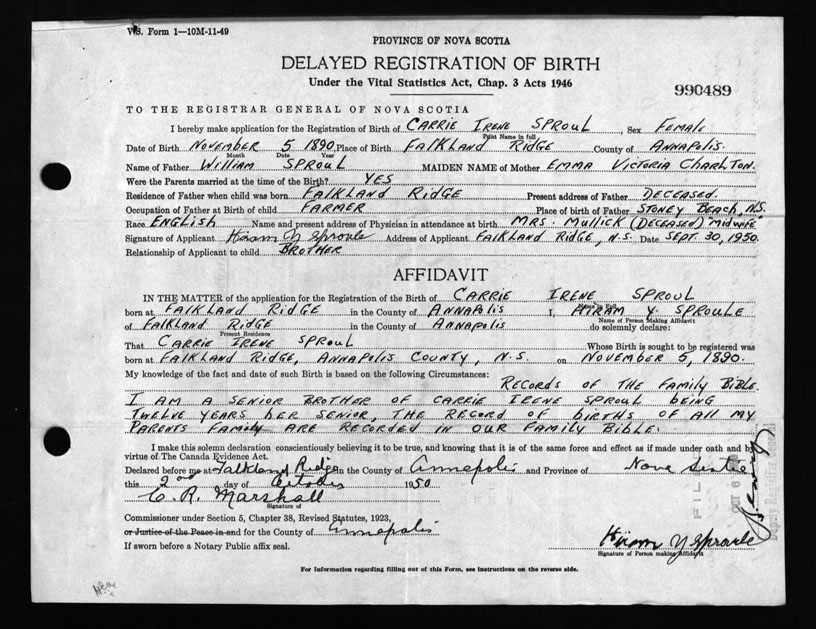 V.S. Form 1—10M-11-49
PROVINCE OF NOVA SCOTIA
DELAYED REGISTRATION OF BIRTH
Under the Vital Statistics Act, Chap. 3 Acts 1946
990489
TO THE REGISTRAR GENERAL OF NOVA SCOTIA
I hereby make application for the Registration of Birth of CARRIE IRENE SPROUL, Sex FEMALE
Print Name in full
Date of Birth NOVEMBER 5 1890, Place of Birth FALKLAND RIDGE County of ANNAPOLIS.
Month Date Year
Name of Father WILLIAM SPROUL MAIDEN NAME of Mother EMMA VICTORIA CHARLTON.
Were the Parents married at the time of the Birth? YES
Residence of Father when child was born FALKLAND RIDGE Present address of Father DECEASED.
Occupation of Father at Birth of child FARMER Place of birth of Father STONEY BEACH, N.S.
Race ENGLISH Name and present address of Physician in attendance at birth MRS. MULLICK (DECEASED) "MIDWIFE"
Signature of Applicant Hiram Y Sproule Address of Applicant FALKLAND RIDGE, N.S. Date SEPT. 30, 1950.
Relationship of Applicant to child BROTHER
AFFIDAVIT
IN THE MATTER of the application for the Registration of the Birth of CARRIE IRENE SPROUL
Name in Full
born at FALKLAND RIDGE in the County of ANNAPOLIS I, HIRAM Y. SPROULE
Name of Person Making Affidavit
of FALKLAND RIDGE in the County of ANNAPOLIS do solemnly declare:
Present Residence
That CARRIE IRENE SPROUL Whose Birth is sought to be registered was
born at FALKLAND RIDGE, ANNAPOLIS COUNTY, N.S. on NOVEMBER 5, 1890.
My knowledge of the fact and date of such Birth is based on the following Circumstances:
RECORDS OF THE FAMILY BIBLE.
I AM A SENIOR BROTHER OF CARRIE IRENE SPROUL BEING
TWELVE YEARS HER SENIOR, THE RECORD OF BIRTHS OF ALL MY
PARENTS FAMILY ARE RECORDED IN OUR FAMILY BIBLE.
I make this solemn declaration conscientiously believing it to be true, and knowing that it is of the same force and effect as if made under oath and by
virtue of The Canada Evidence Act.
Declared before me at Falkland Ridge in the County of Annapolis and Province of Nova Scotia
this 2nd day of October 1950
C. R. Marshall
Signature of
Commissioner under Section 5, Chapter 38, Revised Statutes, 1923,
or Justice of the Peace in and for the County of Annapolis
If sworn before a Notary Public affix seal.
Hiram Y Sproule
Signature of Person making Affidavit
For Information regarding filling out of this Form, see instructions on the reverse side.
FILED
OCT 6
Deputy Registrar